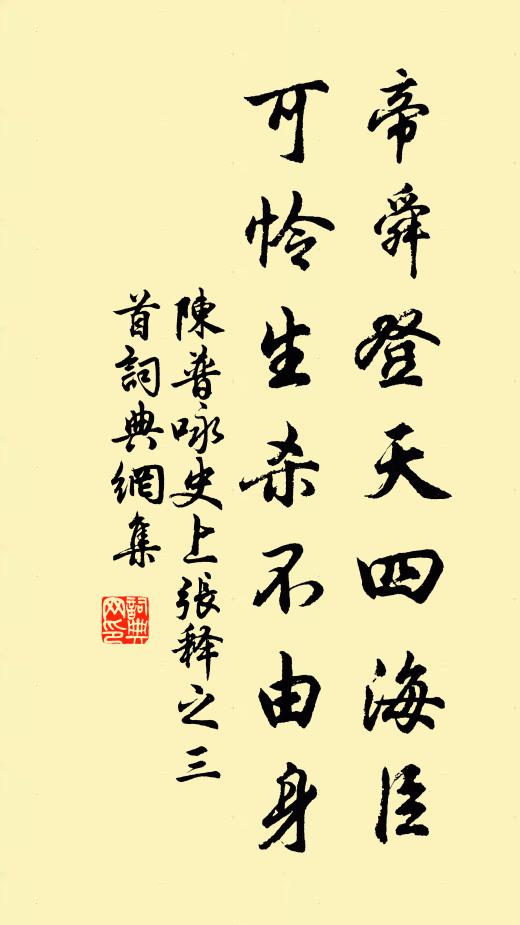 帝舜登天四海臣
可怜生杀不由身
陳普咏史上張释之三
首詞典網集
詞典
网印